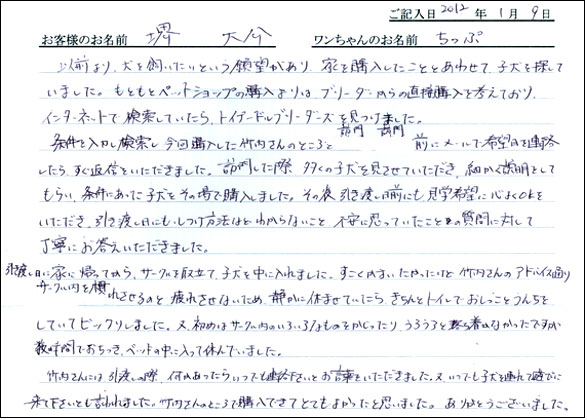 ご記入日 2012 年 1 月 9 日
お客様のお名前 堺 大介 ワンちゃんのお名前 ちっぷ
以前より、犬を飼いたいという願望があり、家を購入したこととあわせて、子犬を探して
いました。もともとペットショップの購入よりは ブリーダーからの直接購入を考えており、
インターネットで検索していたら、トイプードルブリーダーズを見つけました。
条件を入力し検索し 今回購入した竹内さんのところと 訪問 訪問 前にメールで希望日を連絡
したら、すぐ返信をいただきました。訪問した際、多くの子犬を見させていただき、細かく説明をして
もらい、条件にあった子犬をその場で購入しました。その後 引き渡し日前にも 見学希望に心よくOKを
いただき、引き渡し日にも、しつけ方法などわからないこと、不安に思っていたことの質問に対して
丁寧にお答えいただきました。
引き渡し日に家に帰ってから、サークルを組立て、子犬を中に入れました。すごくかまいたかったけど 竹内さんのアドバイス通り
サークル内を慣れさせるのと 疲れさせないため、静かに休ませていたら、きちんとトイレでおしっことうんちを
していてビックリしました。又、初めはサークル内のいろいろなものをかじったり、うろうろと落ち着かなかったですが
数時間でおちつき、ベッドの中に入って休んでいました。
竹内さんには、引き渡しの際、何かあったらいつでも連絡下さいとお言葉をいただきました。又、いつでも子犬を連れて遊びに
来て下さいとも言われました。竹内さんのところで購入できてとてもよかったと思いました。ありがとうございました。